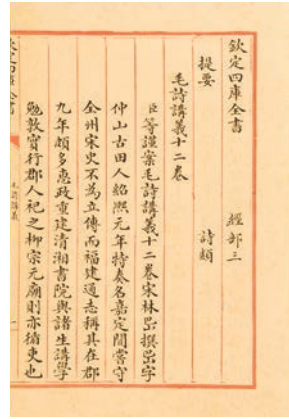 欽定四庫全書　經部三
提要　詩類
毛詩講義十二卷
臣等謹案毛詩講義十二卷宋林岊撰岊字
仲山古田人紹熙元年特奏名嘉定間嘗守
全州宋史不為立傳而福建通志稱其在郡
九年頗多惠政重建清湘書院與諸生講學
勉敦實行郡人祀之柳宗元廟則亦循吏也
毛詩講義